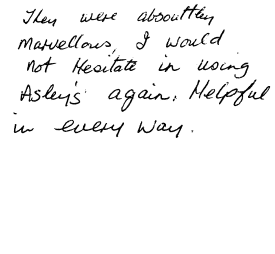 They were absoultley
marvellous, I would
not Hesitate in using
Asley's again. Helpful
in every way.